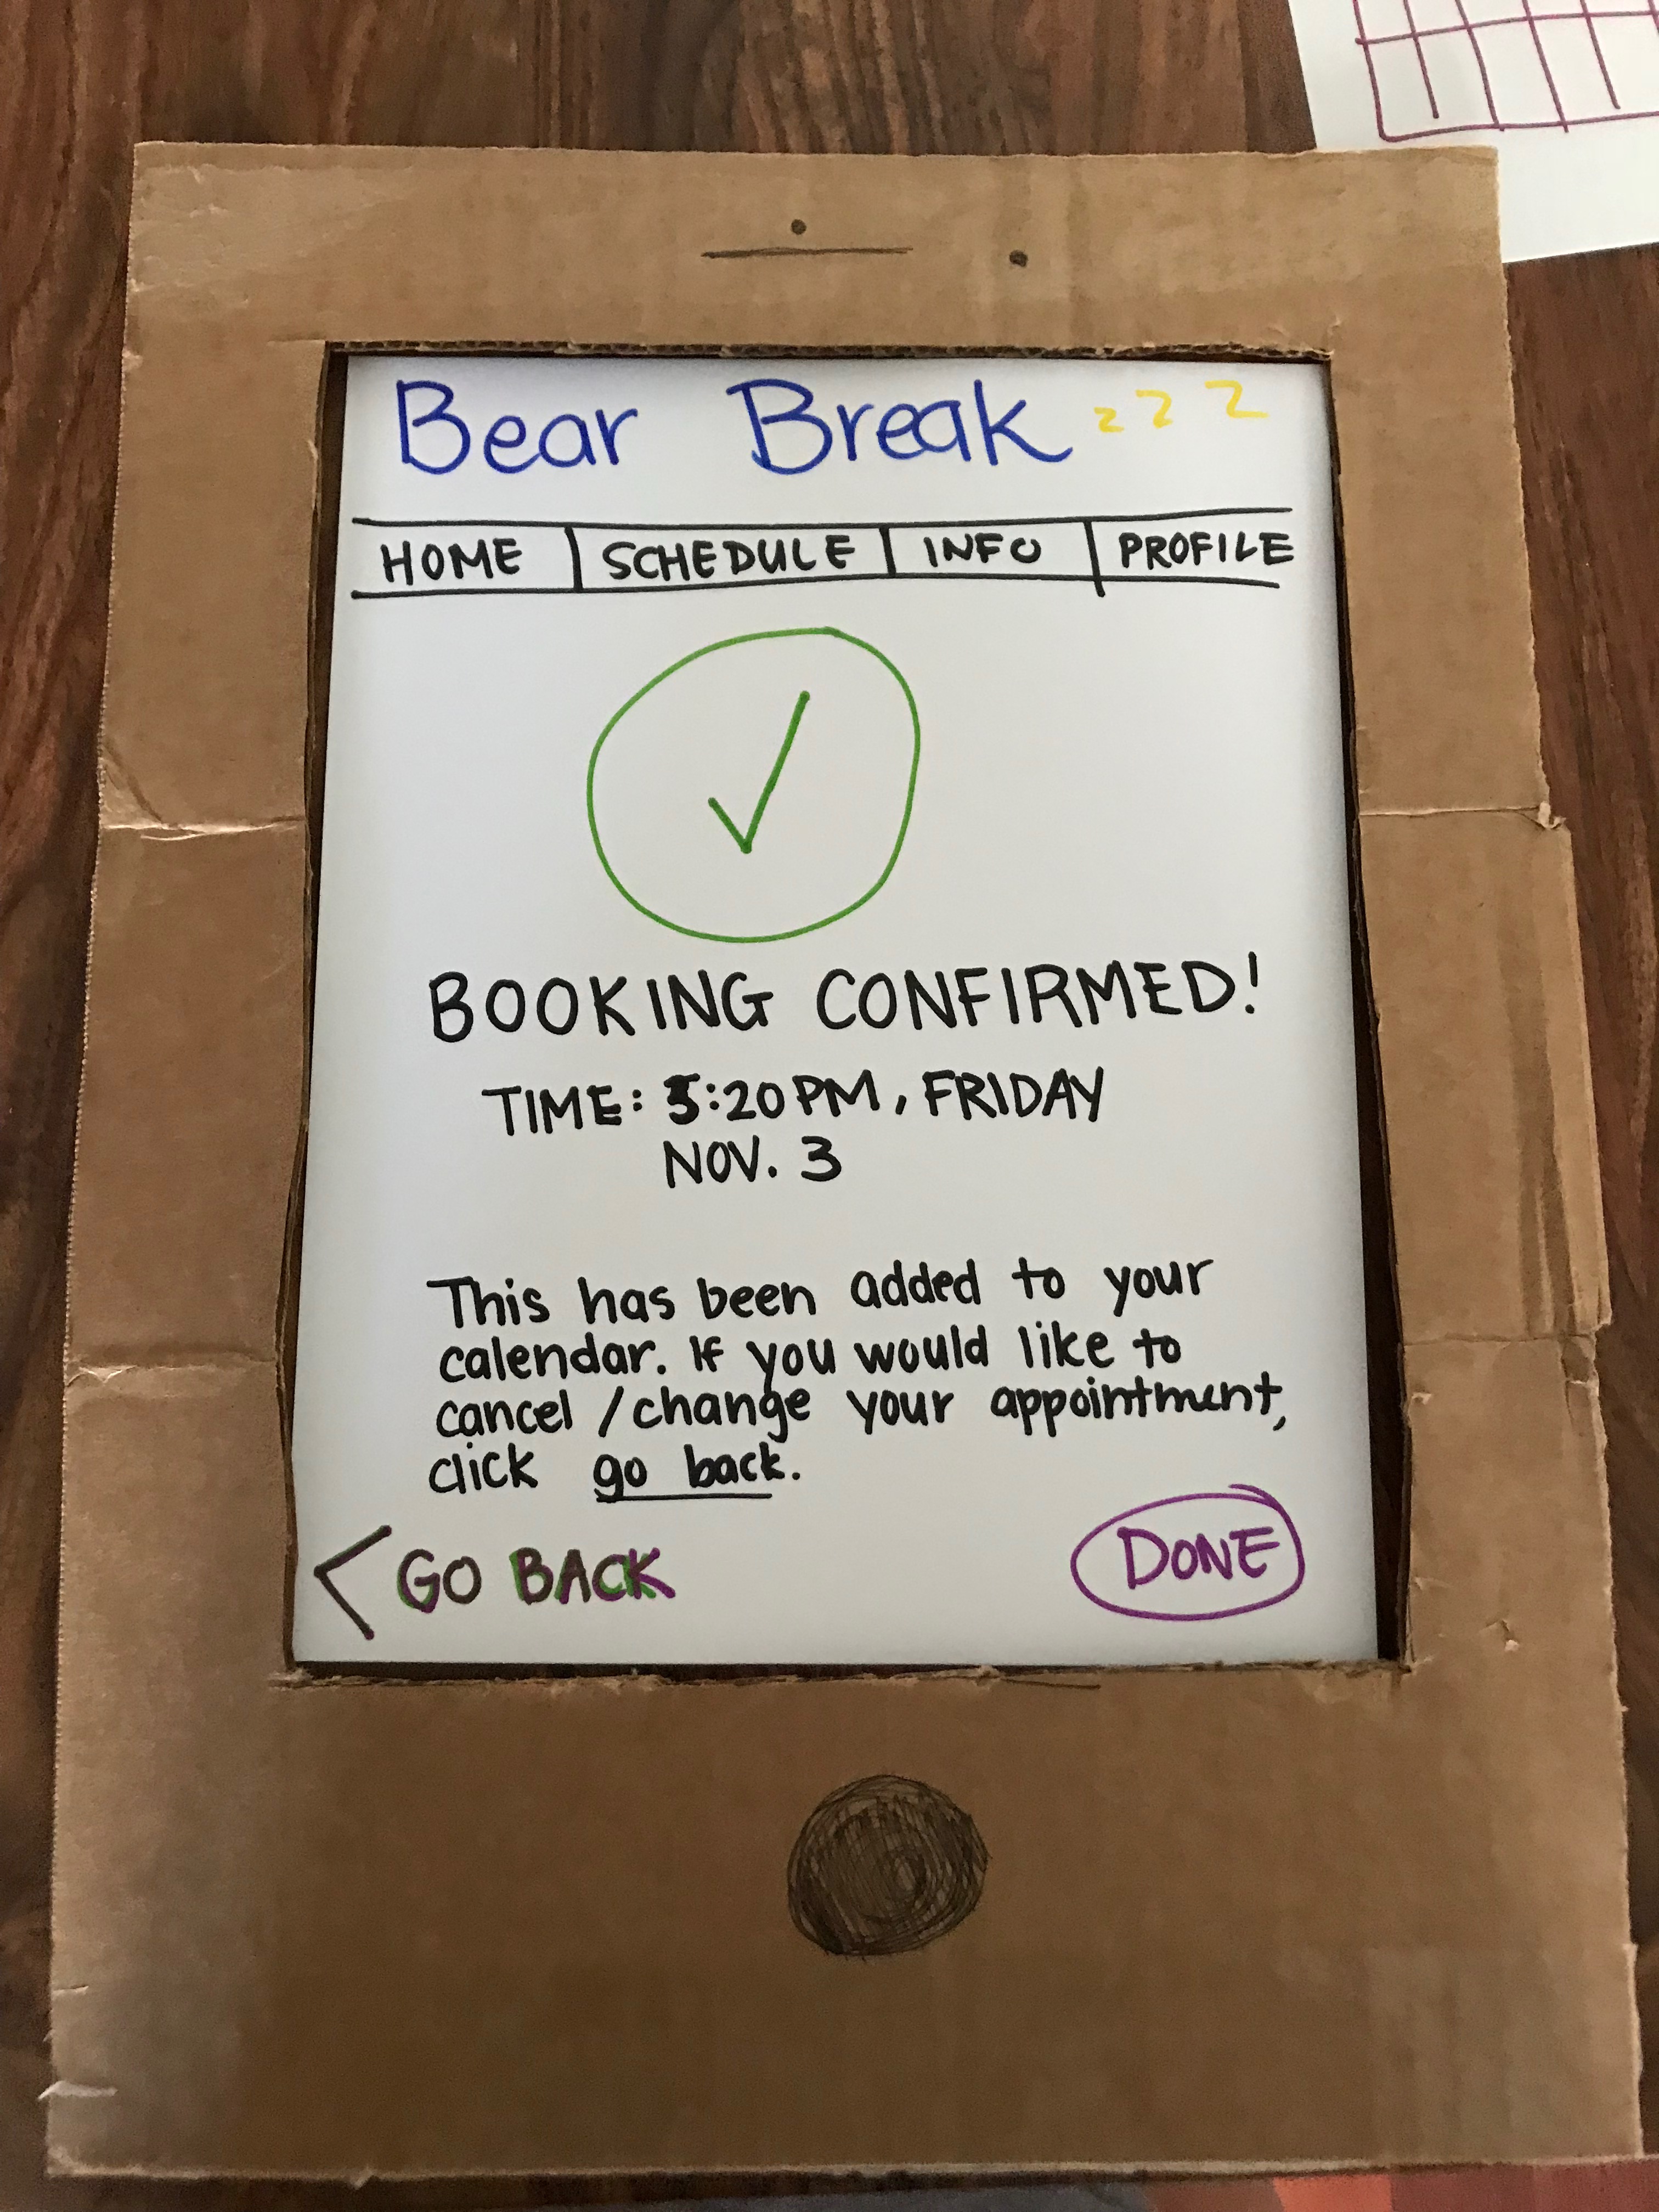 Bear Break z z z
HOME | SCHEDULE | INFO | PROFILE
BOOKING CONFIRMED!
TIME: 5:20PM, FRIDAY
NOV. 3
This has been added to your
calendar. If you would like to
cancel / change your appointment,
click go back.
< GO BACK
DONE